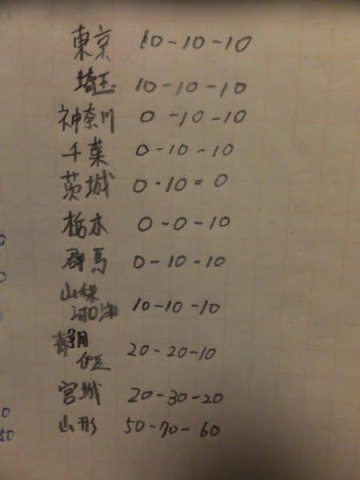 東京 10-10-10
埼玉 10-10-10
神奈川 0-10-10
千葉 0-10-10
茨城 0-10-0
栃木 0-0-10
群馬 0-10-10
山梨
河口湖 10-10-10
静岡
伊豆 20-20-10
宮城 20-30-20
山形 50-70-60
0
50